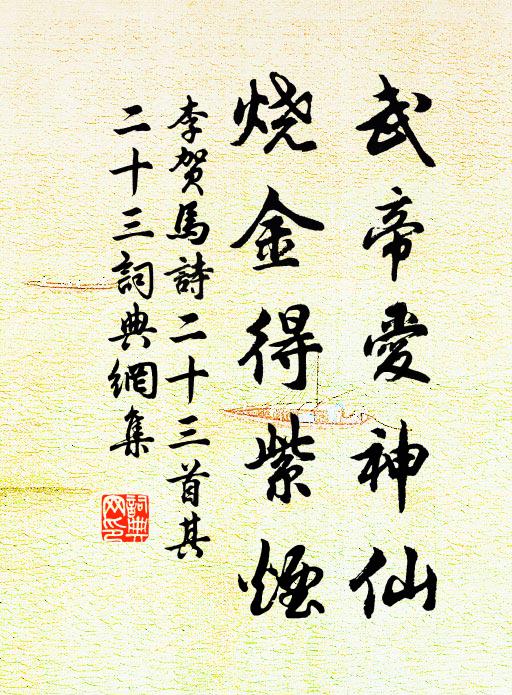 武帝愛神仙
烧金得紫煙
李贺馬詩二十三首其
二十三詞典網集
詞典
网印